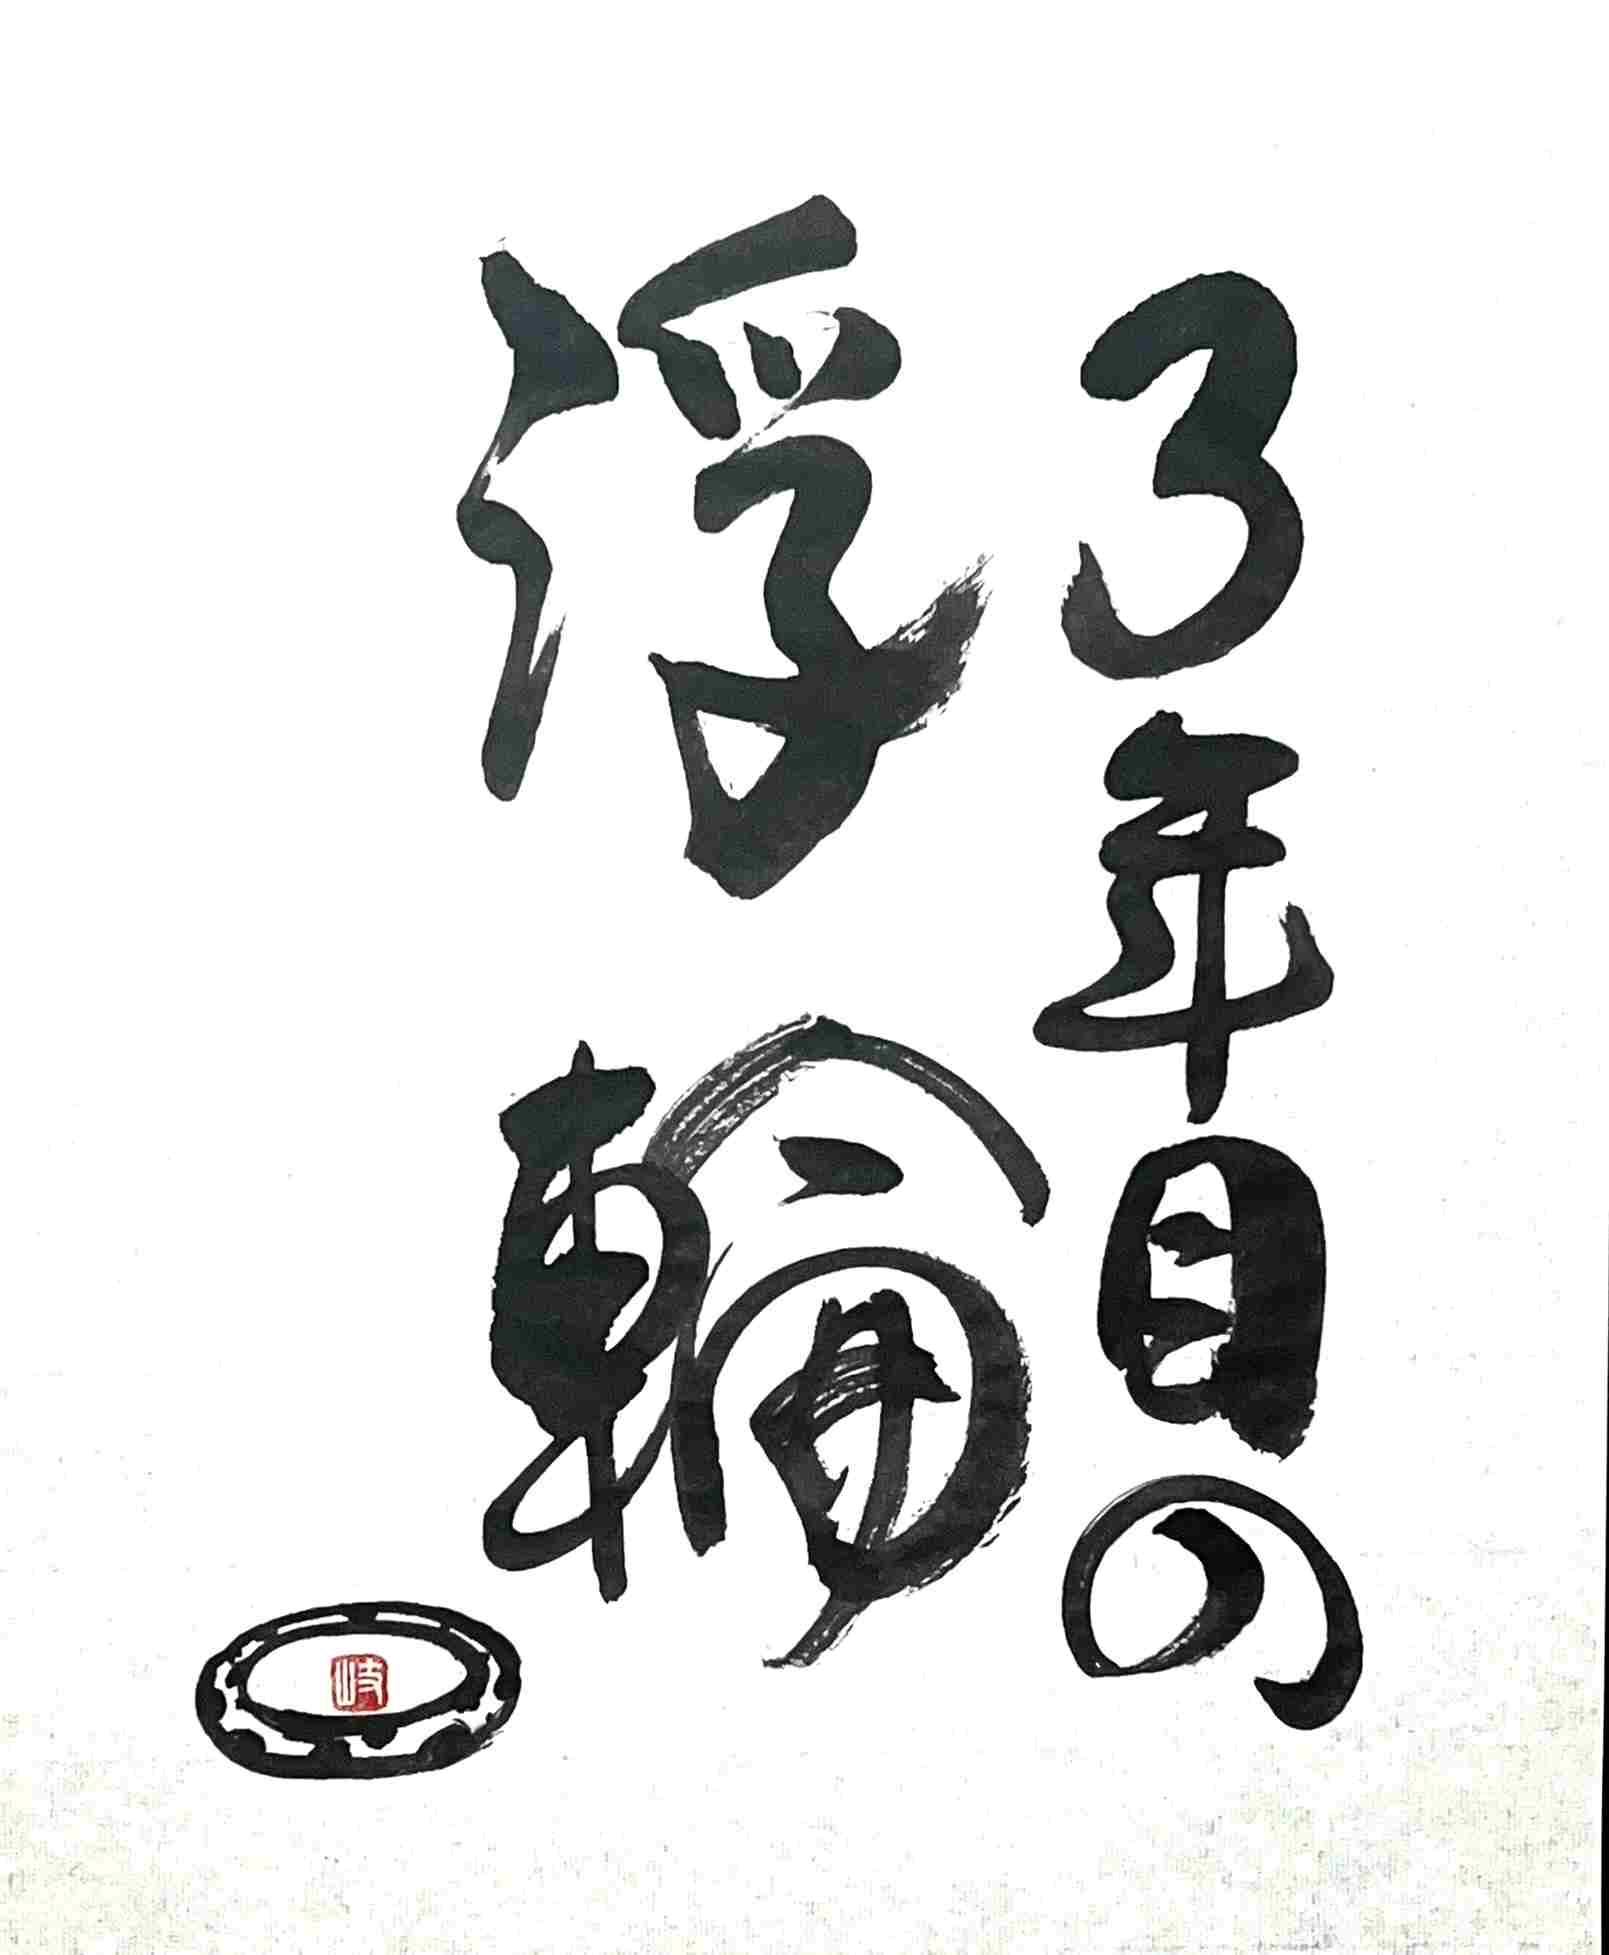 3年目の
浮輪
岐